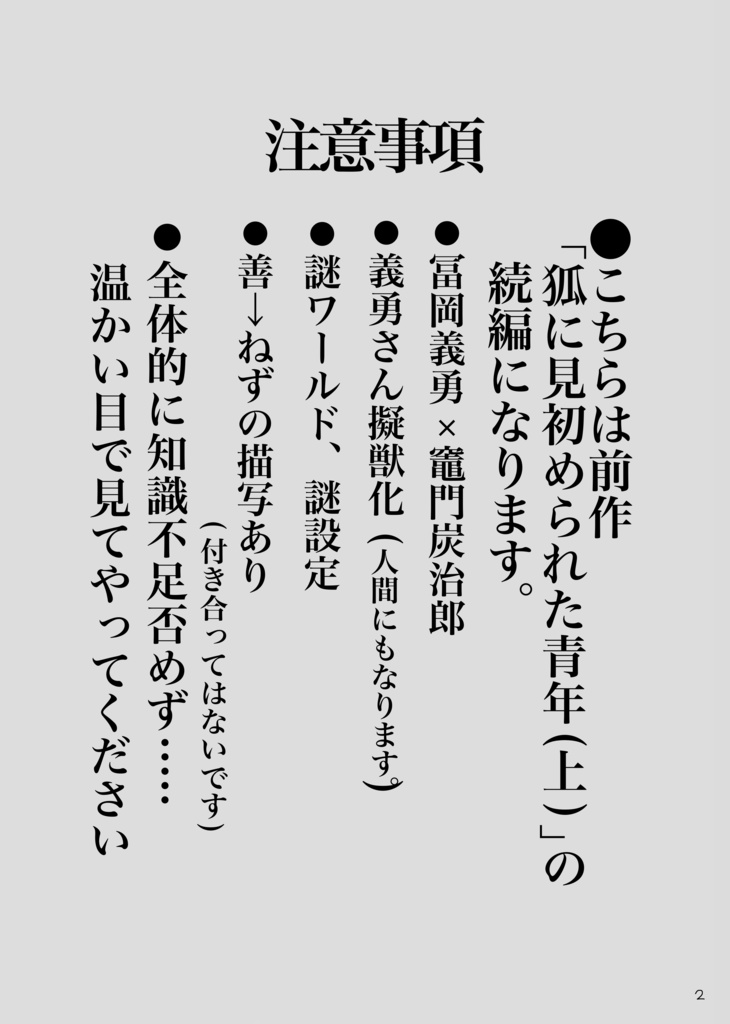 注意事項
●こちらは前作
「狐に見初められた青年(上)」の
続編になります。
●冨岡義勇×竈門炭治郎
●義勇さん擬獣化(人間にもなります。)
●謎ワールド、謎設定
●善→ねずの描写あり
(付き合ってはないです)
●全体的に知識不足否めず……
温かい目で見てやってください
2